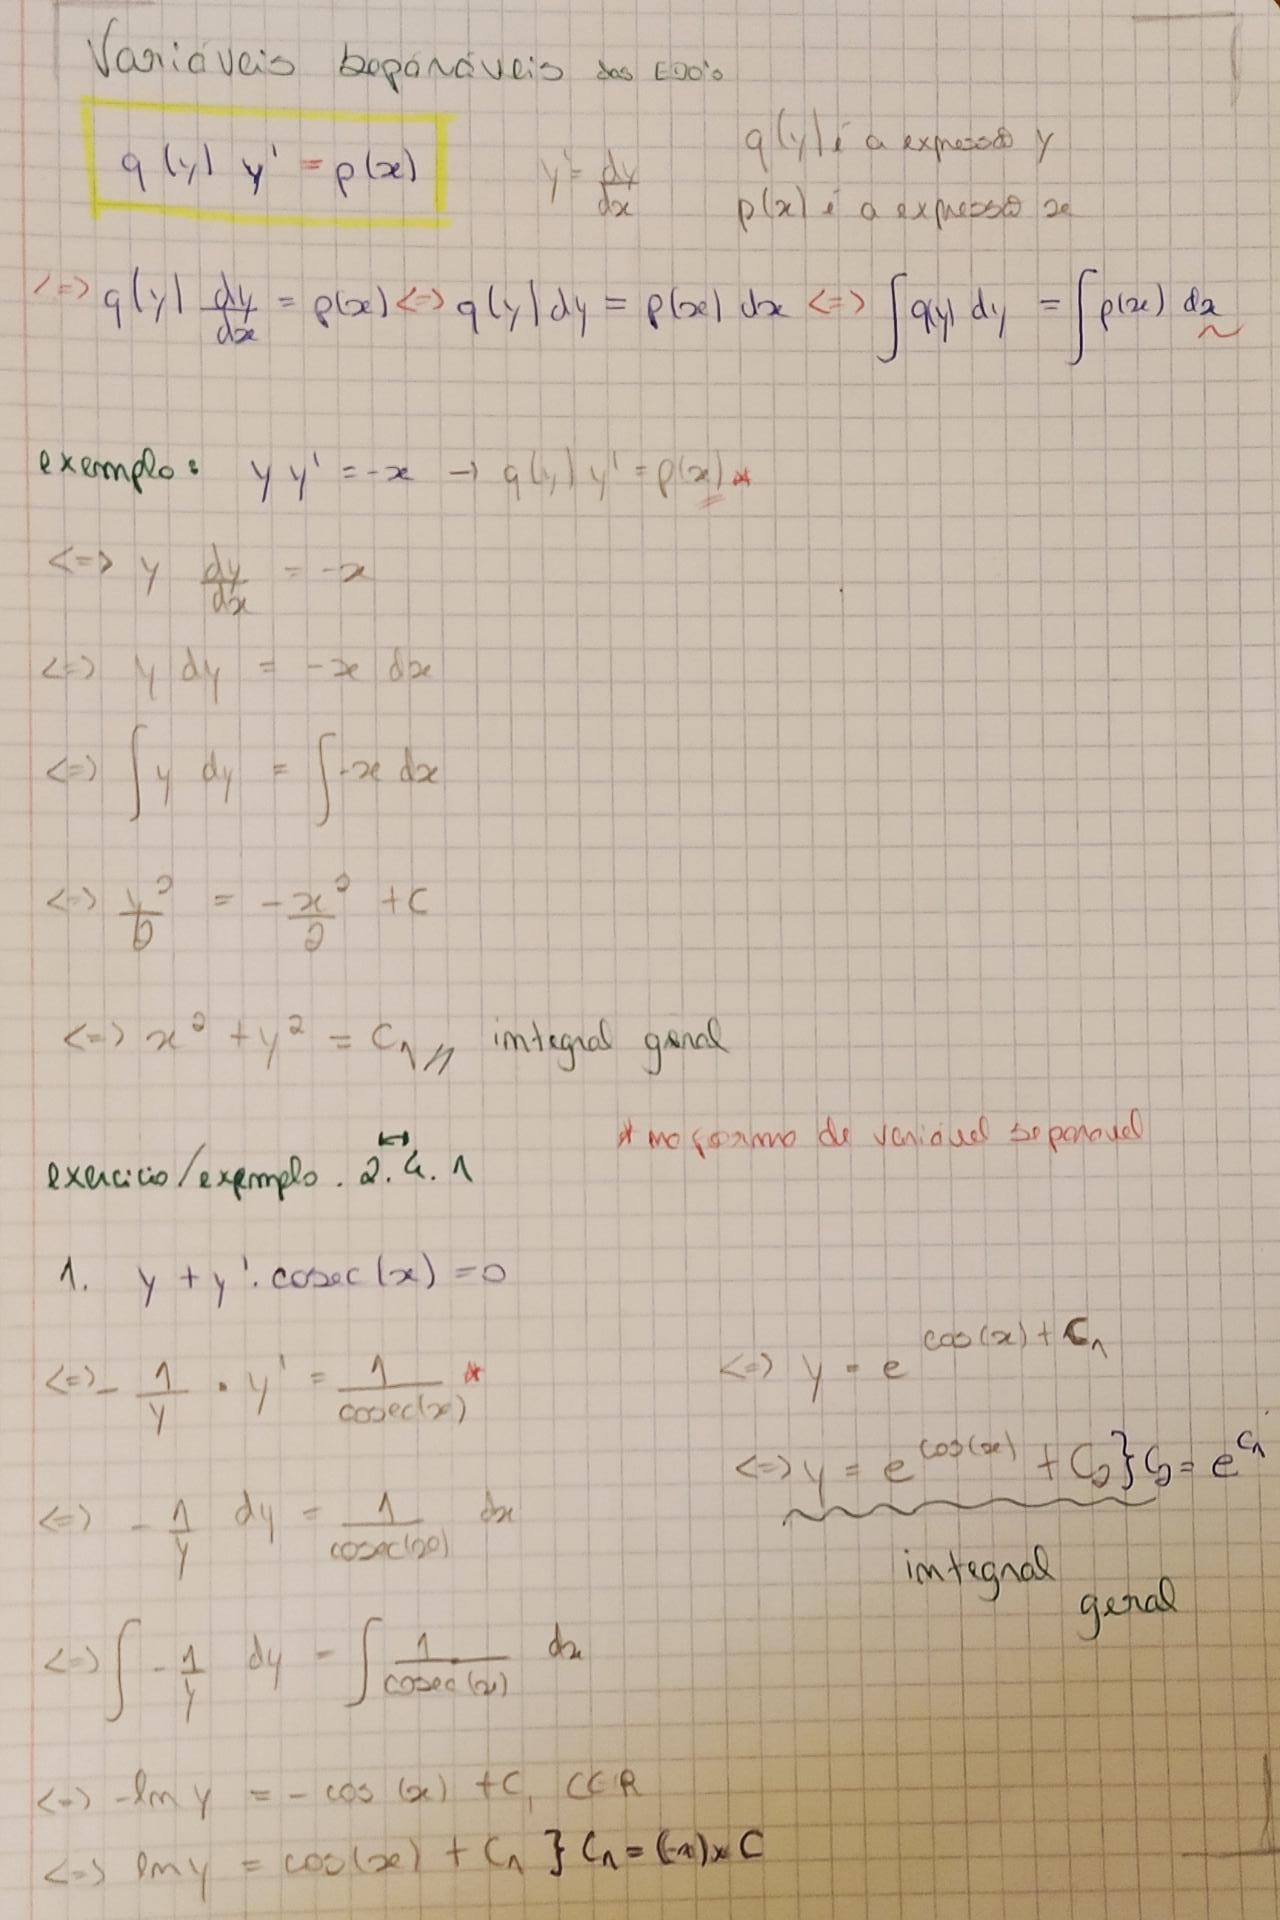 Variáveis Separáveis das EDO's
q(y) y' = p(x)
y' = dy/dx
q(y) é a expressão y
p(x) é a expressão x
<=> q(y) dy/dx = p(x) <=> q(y) dy = p(x) dx <=> ∫ q(y) dy = ∫ p(x) dx
exemplo: y y' = -x → q(y) y' = p(x) *
<=> y dy/dx = -x
<=> y dy = -x dx
<=> ∫ y dy = ∫ -x dx
<=> y²/2 = -x²/2 + C
<=> x² + y² = C₁ // integral geral
* na forma de variável separável
exercicio/exemplo. 2.4.1
1. y + y'. cosec(x) = 0
<=> - 1/y · y' = 1/cosec(x) *
<=> - 1/y dy = 1/cosec(x) dx
<=> ∫ - 1/y dy = ∫ 1/cosec(x) dx
<=> -ln y = - cos (x) + C, C∈R
<=> ln y = cos(x) + C₁ } C₁ = (-1)x C
<=> y = e^(cos(x) + C₁)
<=> y = e^(cos(x)) + C₂ } C₂ = e^(C₁)
integral
geral